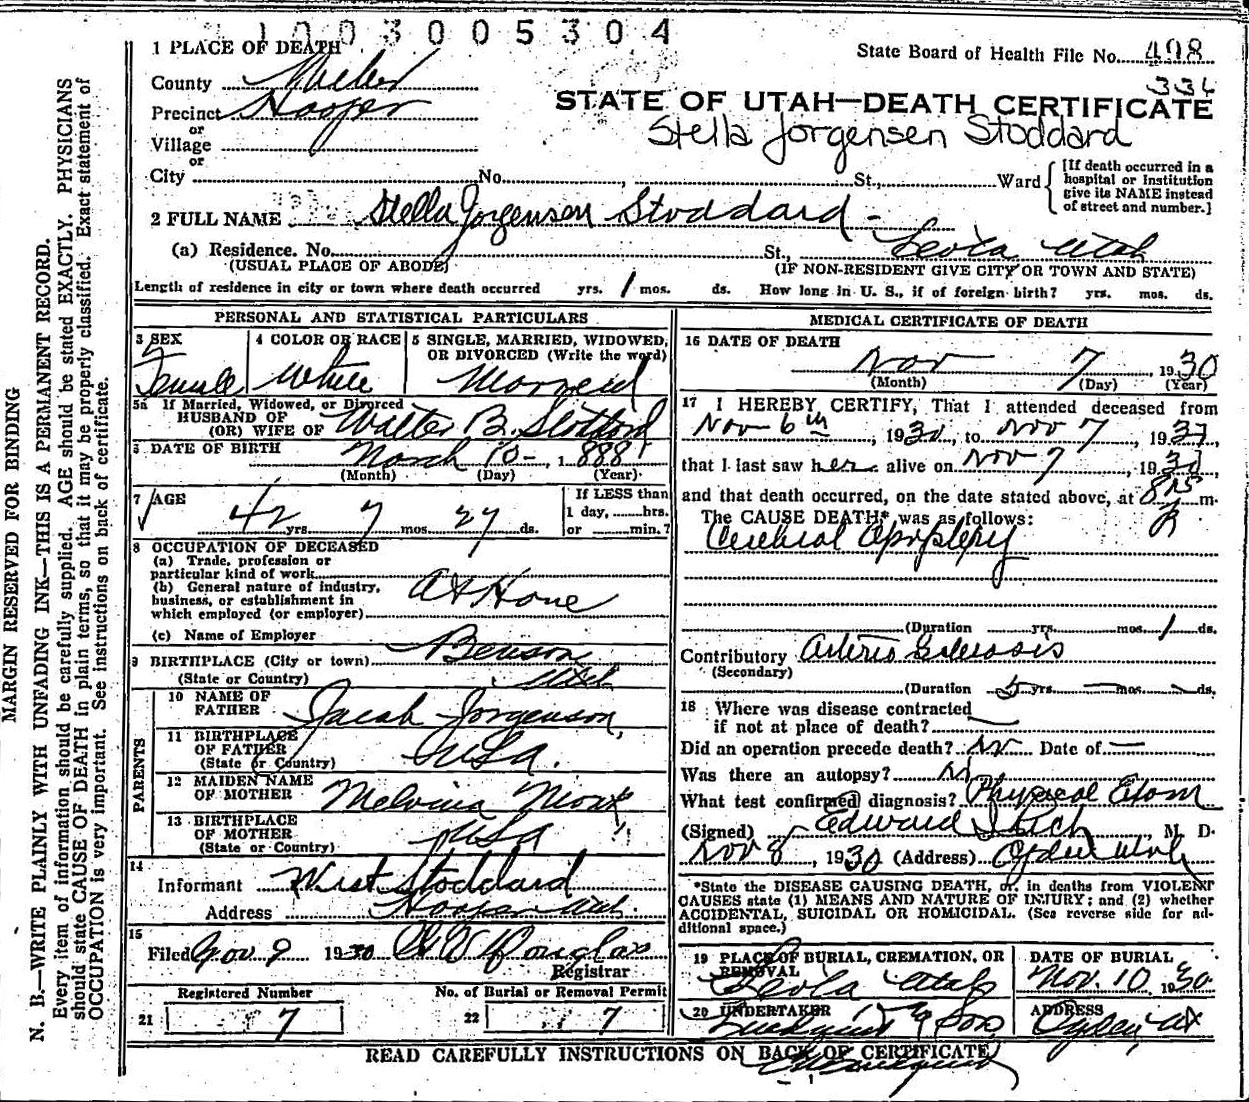 1003005304
1 PLACE OF DEATH
State Board of Health File No. 498
336
County Weber
Precinct Hooper
STATE OF UTAH—DEATH CERTIFICATE
Stella Jorgensen Stoddard
or
Village
or
City No. , St., Ward
[If death occurred in a hospital or institution give its NAME instead of street and number.]
2 FULL NAME Stella Jorgensen Stoddard -
(a) Residence. No. St., Leota Utah
(USUAL PLACE OF ABODE) (IF NON-RESIDENT GIVE CITY OR TOWN AND STATE)
Length of residence in city or town where death occurred yrs. 1 mos. ds. How long in U. S., if of foreign birth? yrs. mos. ds.
PERSONAL AND STATISTICAL PARTICULARS
3 SEX Female
4 COLOR OR RACE White
5 SINGLE, MARRIED, WIDOWED, OR DIVORCED (Write the word) Married
5a If Married, Widowed, or Divorced
HUSBAND OF
(OR) WIFE OF Walter B.
6 DATE OF BIRTH March 10 - , 1888
(Month) (Day) (Year)
7 AGE 42 yrs 7 mos. 27 ds.
If LESS than 1 day, hrs. or min.?
8 OCCUPATION OF DECEASED
(a) Trade, profession or particular kind of work
(b) General nature of industry, business, or establishment in which employed (or employer) At Home
(c) Name of Employer
9 BIRTHPLACE (City or town) Benson
(State or Country) Utah
PARENTS
10 NAME OF FATHER Jacob Jorgenson,
11 BIRTHPLACE OF FATHER (State or Country) USA.
12 MAIDEN NAME OF MOTHER Melvina
13 BIRTHPLACE OF MOTHER (State or Country) USA
14
Informant Stoddard
Address Hooper Utah.
15
Filed Nov 9 1930 Douglas
Registrar
Registered Number
21 7
No. of Burial or Removal Permit
22 7
MEDICAL CERTIFICATE OF DEATH
16 DATE OF DEATH
Nov 7 , 1930
(Month) (Day) (Year)
17 I HEREBY CERTIFY, That I attended deceased from
Nov 6th , 1930, to Nov 7 , 1930,
that I last saw her alive on Nov 7 , 1930
and that death occurred, on the date stated above, at 8 m.
The CAUSE DEATH* was as follows:
Cerebral Apoplexy
(Duration yrs. mos. 1 ds.
Contributory Arterio Sclerosis
(Secondary)
(Duration 5 yrs. — mos. — ds.
18 Where was disease contracted
if not at place of death? —
Did an operation precede death? No Date of —
Was there an autopsy? No
What test confirmed diagnosis? Physical Exam
(Signed) Edward I Rich , M. D.
Nov 8 , 1930 (Address) Ogden Utah
*State the DISEASE CAUSING DEATH, or, in deaths from VIOLENT
CAUSES state (1) MEANS AND NATURE OF INJURY; and (2) whether
ACCIDENTAL, SUICIDAL OR HOMICIDAL. (See reverse side for additional space.)
19 PLACE OF BURIAL, CREMATION, OR REMOVAL
Leota Utah
DATE OF BURIAL
Nov. 10, 1930
20 UNDERTAKER
Lindquist & Sons
ADDRESS
Ogden, Ut
READ CAREFULLY INSTRUCTIONS ON BACK OF CERTIFICATE
MARGIN RESERVED FOR BINDING
N. B.—WRITE PLAINLY WITH UNFADING INK—THIS IS A PERMANENT RECORD.
Every item of information should be carefully supplied. AGE should be stated EXACTLY. PHYSICIANS
should state CAUSE OF DEATH in plain terms, so that it may be properly classified. Exact statement of
OCCUPATION is very important. See instructions on back of certificate.